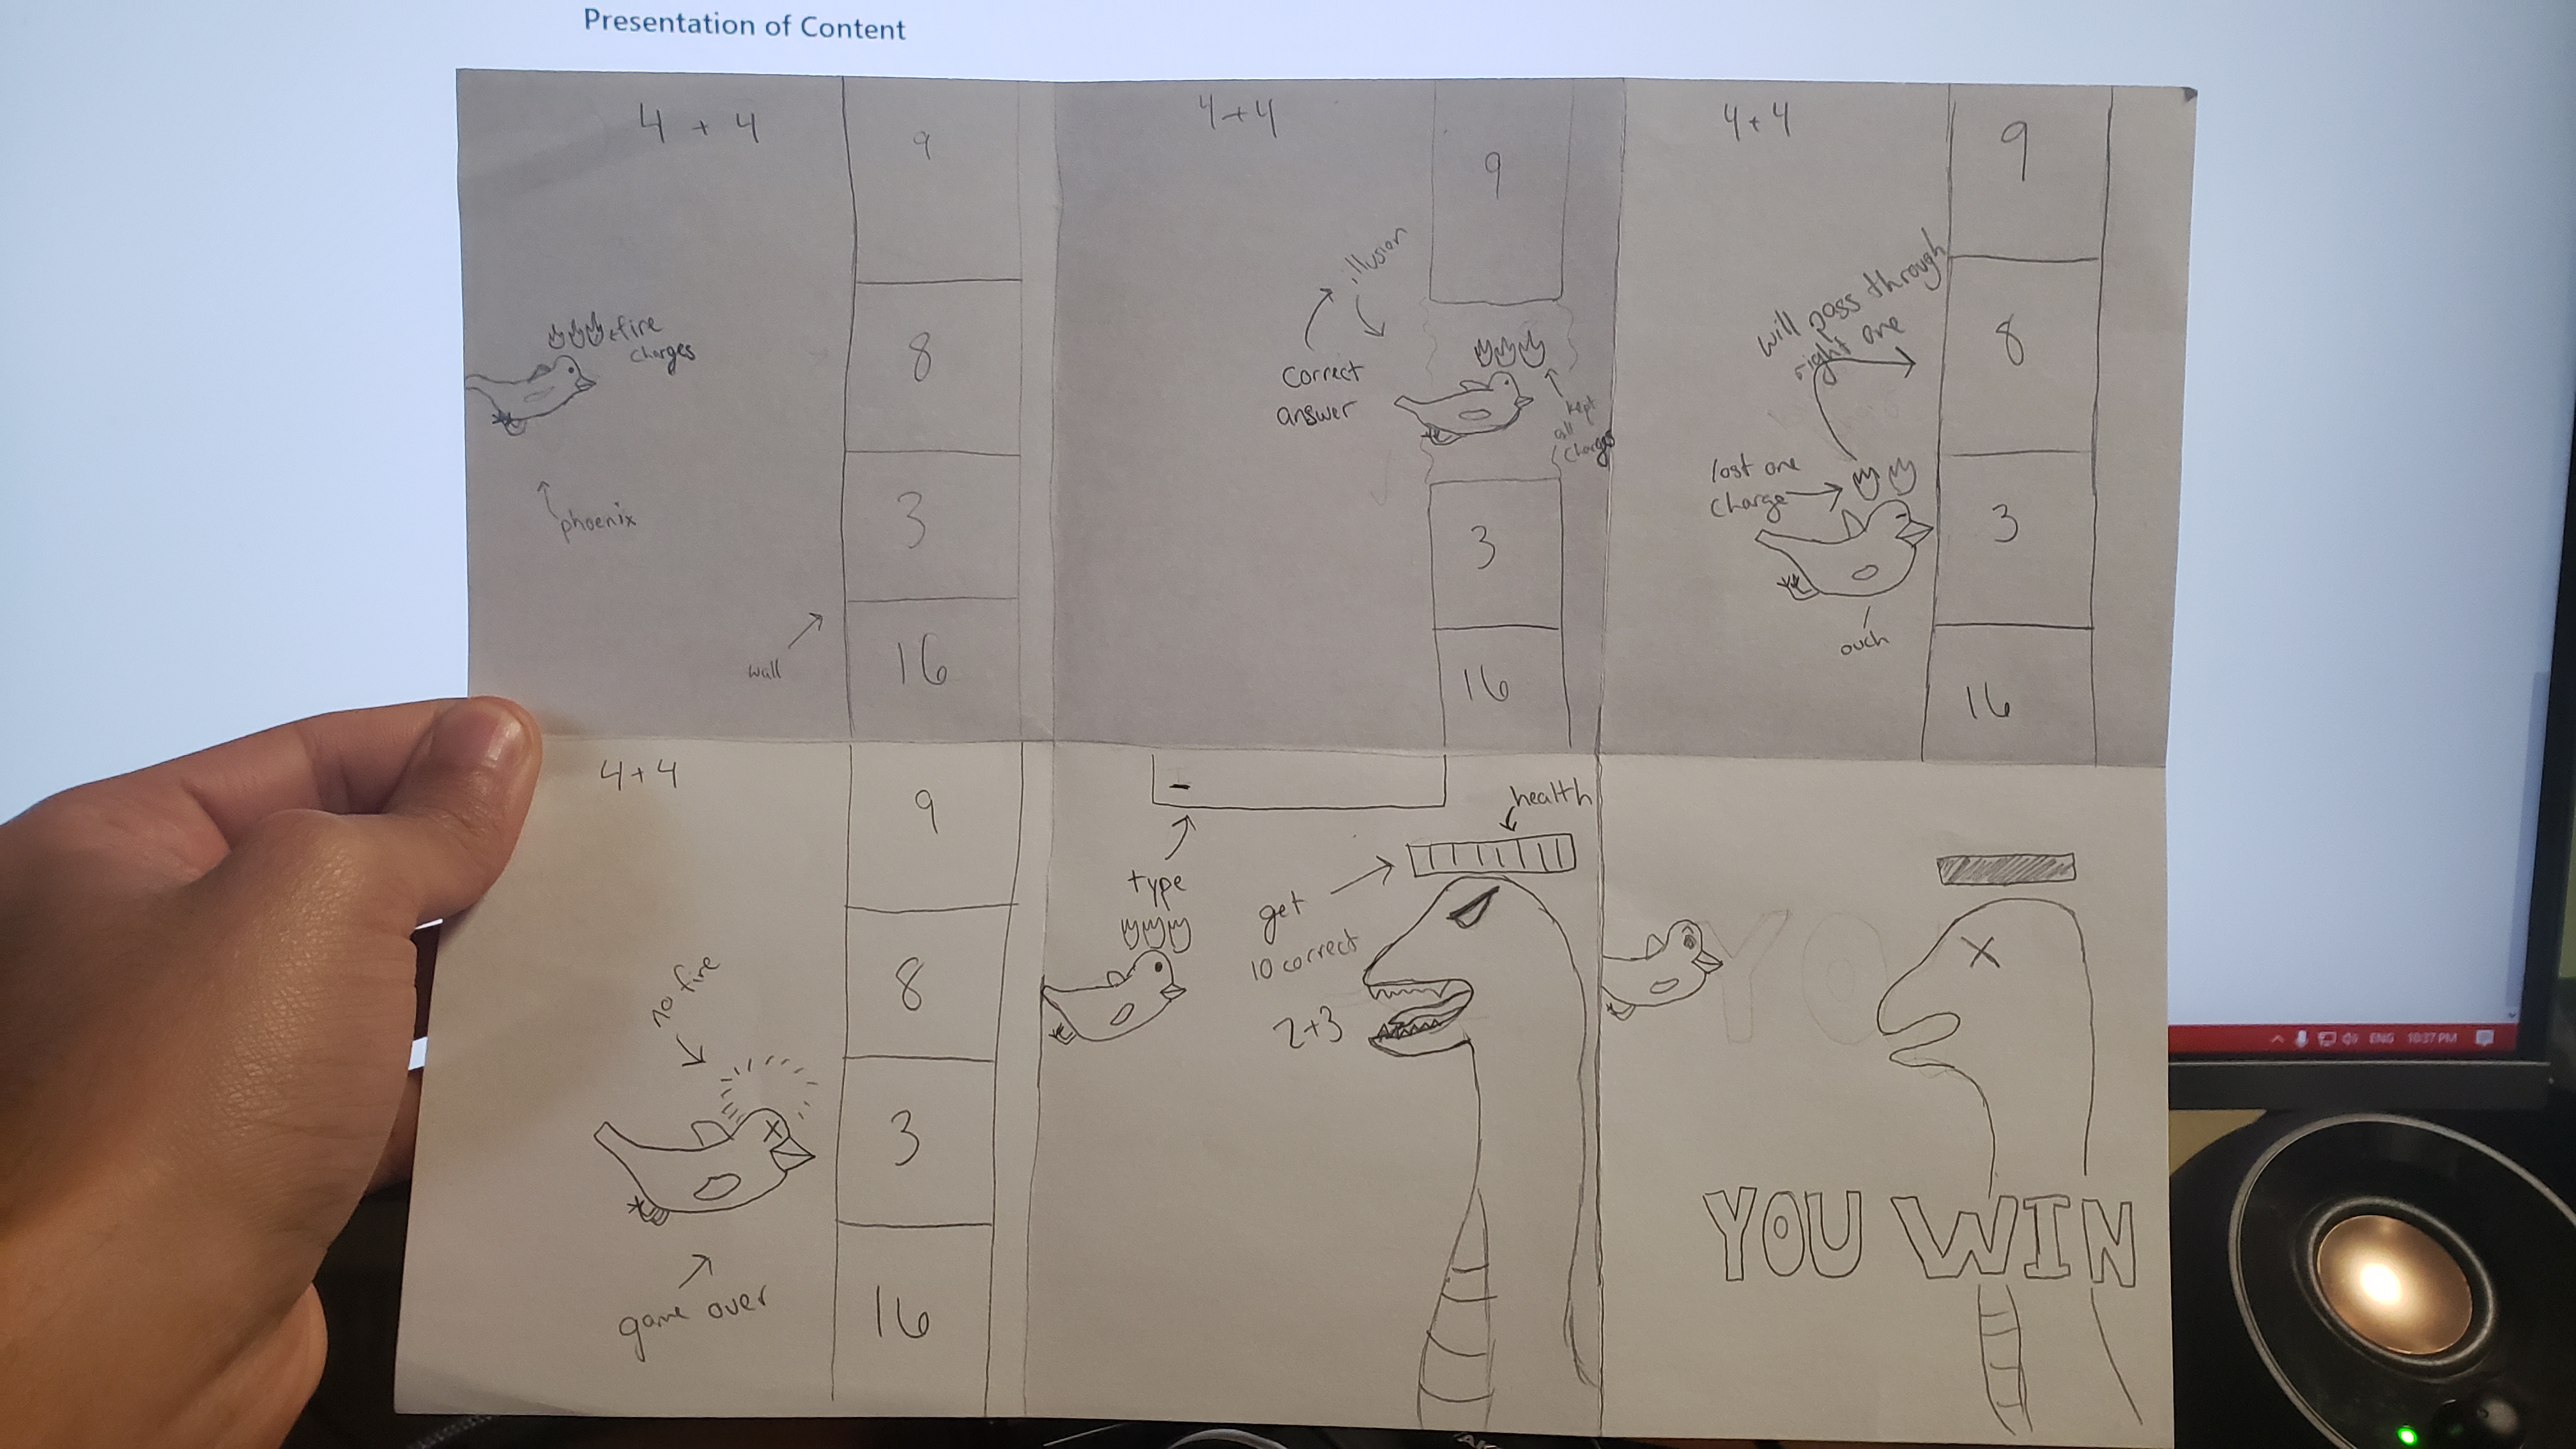 Presentation of Content
4 + 4
9
8
3
16
fire
charges
phoenix
wall
4+4
9
3
16
illusion
correct
answer
kept
all
charges
4+4
9
8
3
16
will pass through
right one
lost one
charge
ouch
4+4
9
8
3
16
no fire
game over
-
type
health
get
10 correct
2+3
YO
YOU WIN
ENG 10:37 PM